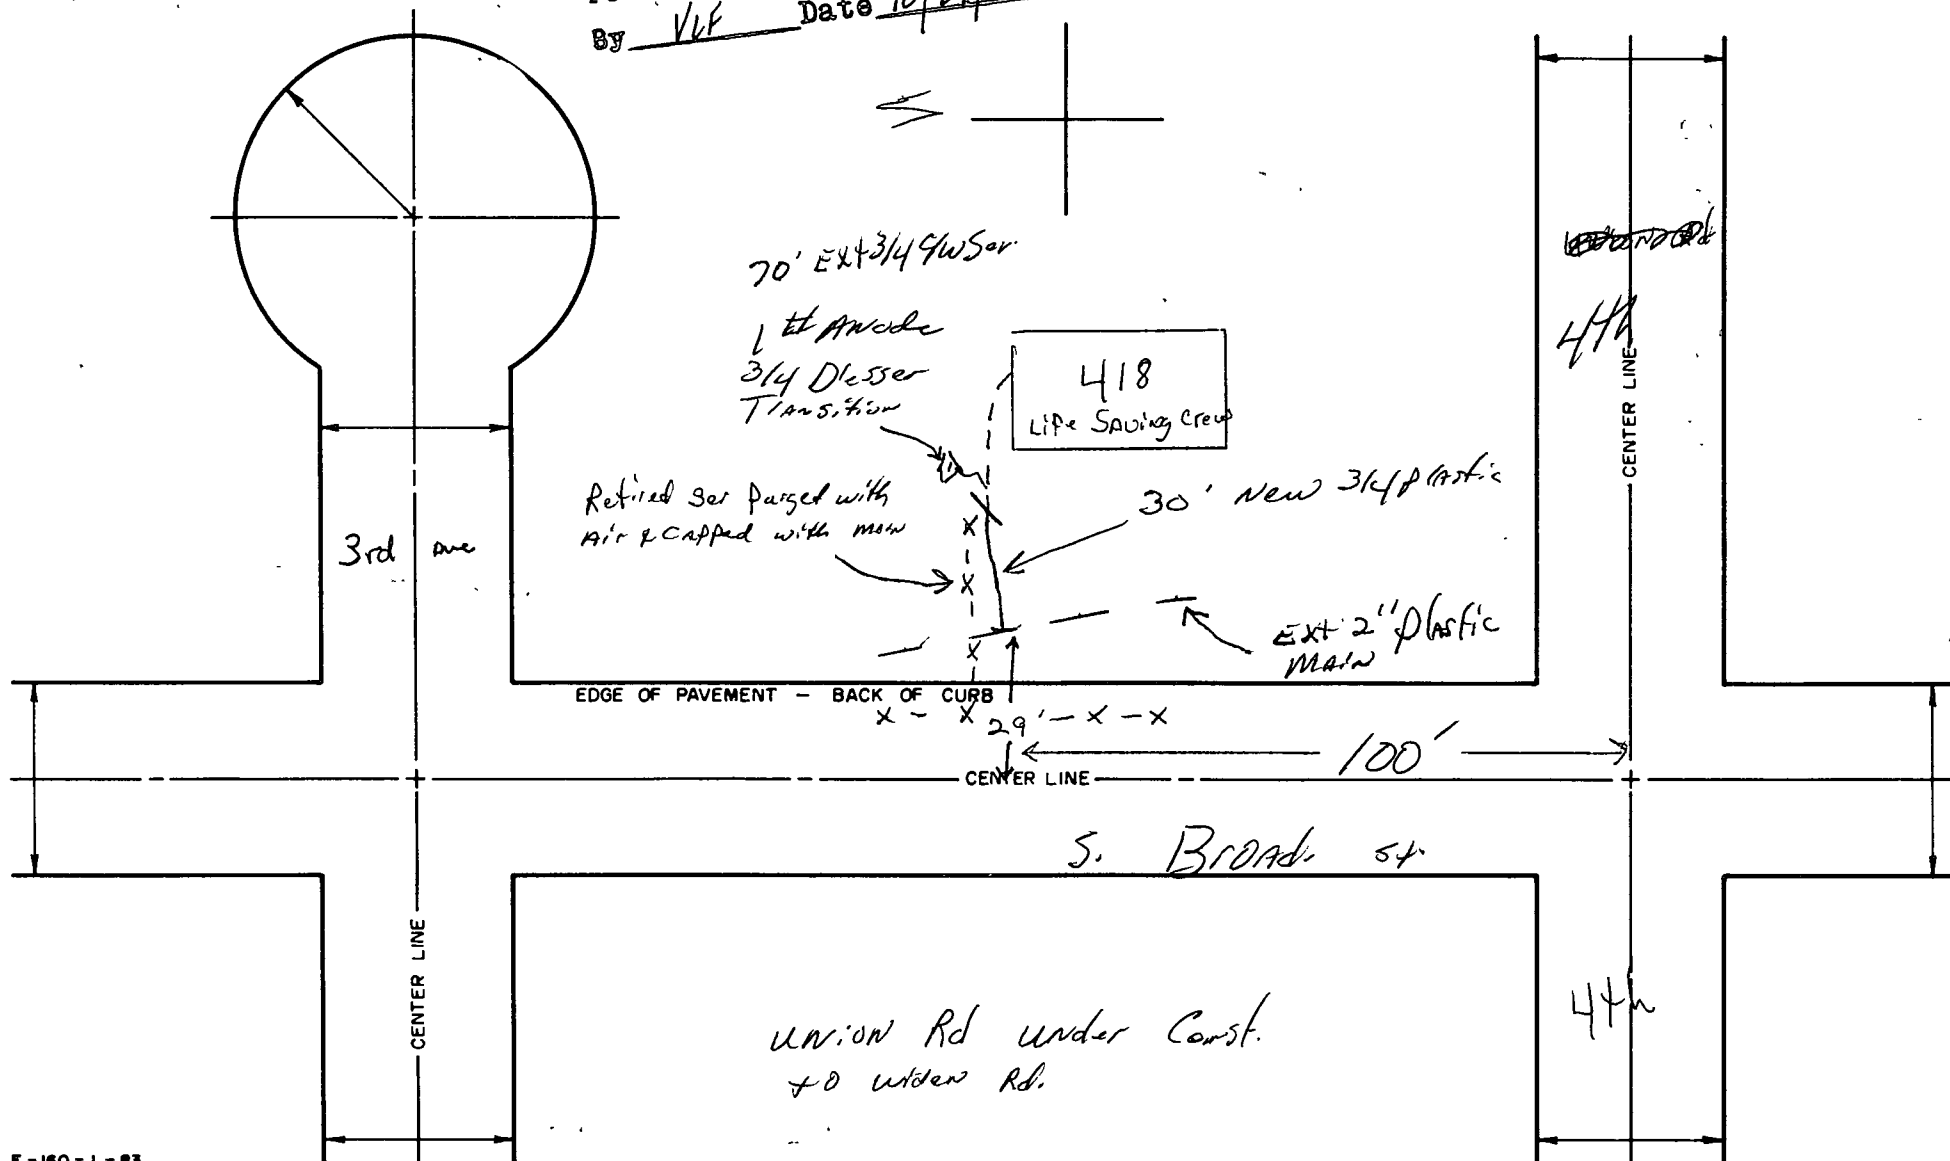 By VLF Date 10/
70' Ext 3/4 C/W Ser.
1 # Anode
3/4 Dresser
Transition
418
Life Saving Crew
4th
CENTER LINE
Retired Ser Purged with
Air & Capped with main
30' New 3/4 plastic
3rd Ave
Ext 2" Plastic
Main
EDGE OF PAVEMENT - BACK OF CURB
x - x 29' - x - x
100'
CENTER LINE
S. Broad. St.
CENTER LINE
4th
Union Rd under Const.
to widen Rd.